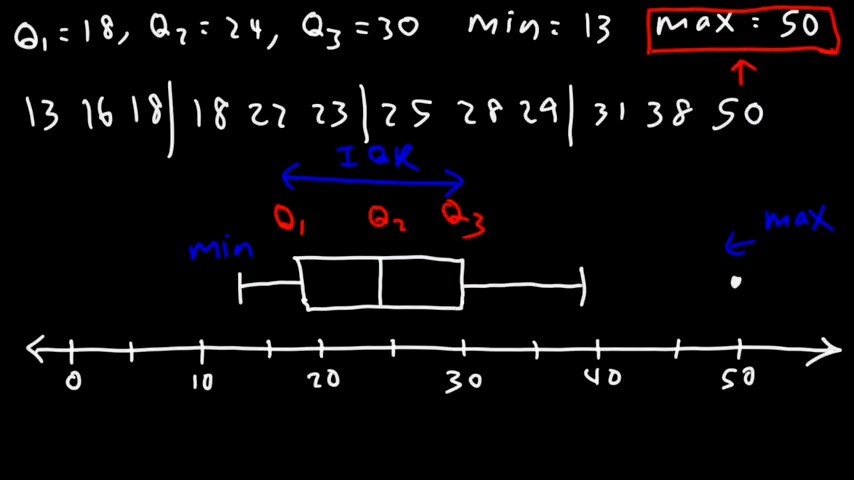 Q₁=18, Q₂=24, Q₃=30 min=13 max=50
13 16 18|18 22 23|25 28 29|31 38 50
IQR
Q₁ Q₂ Q₃ max
min
0 10 20 30 40 50